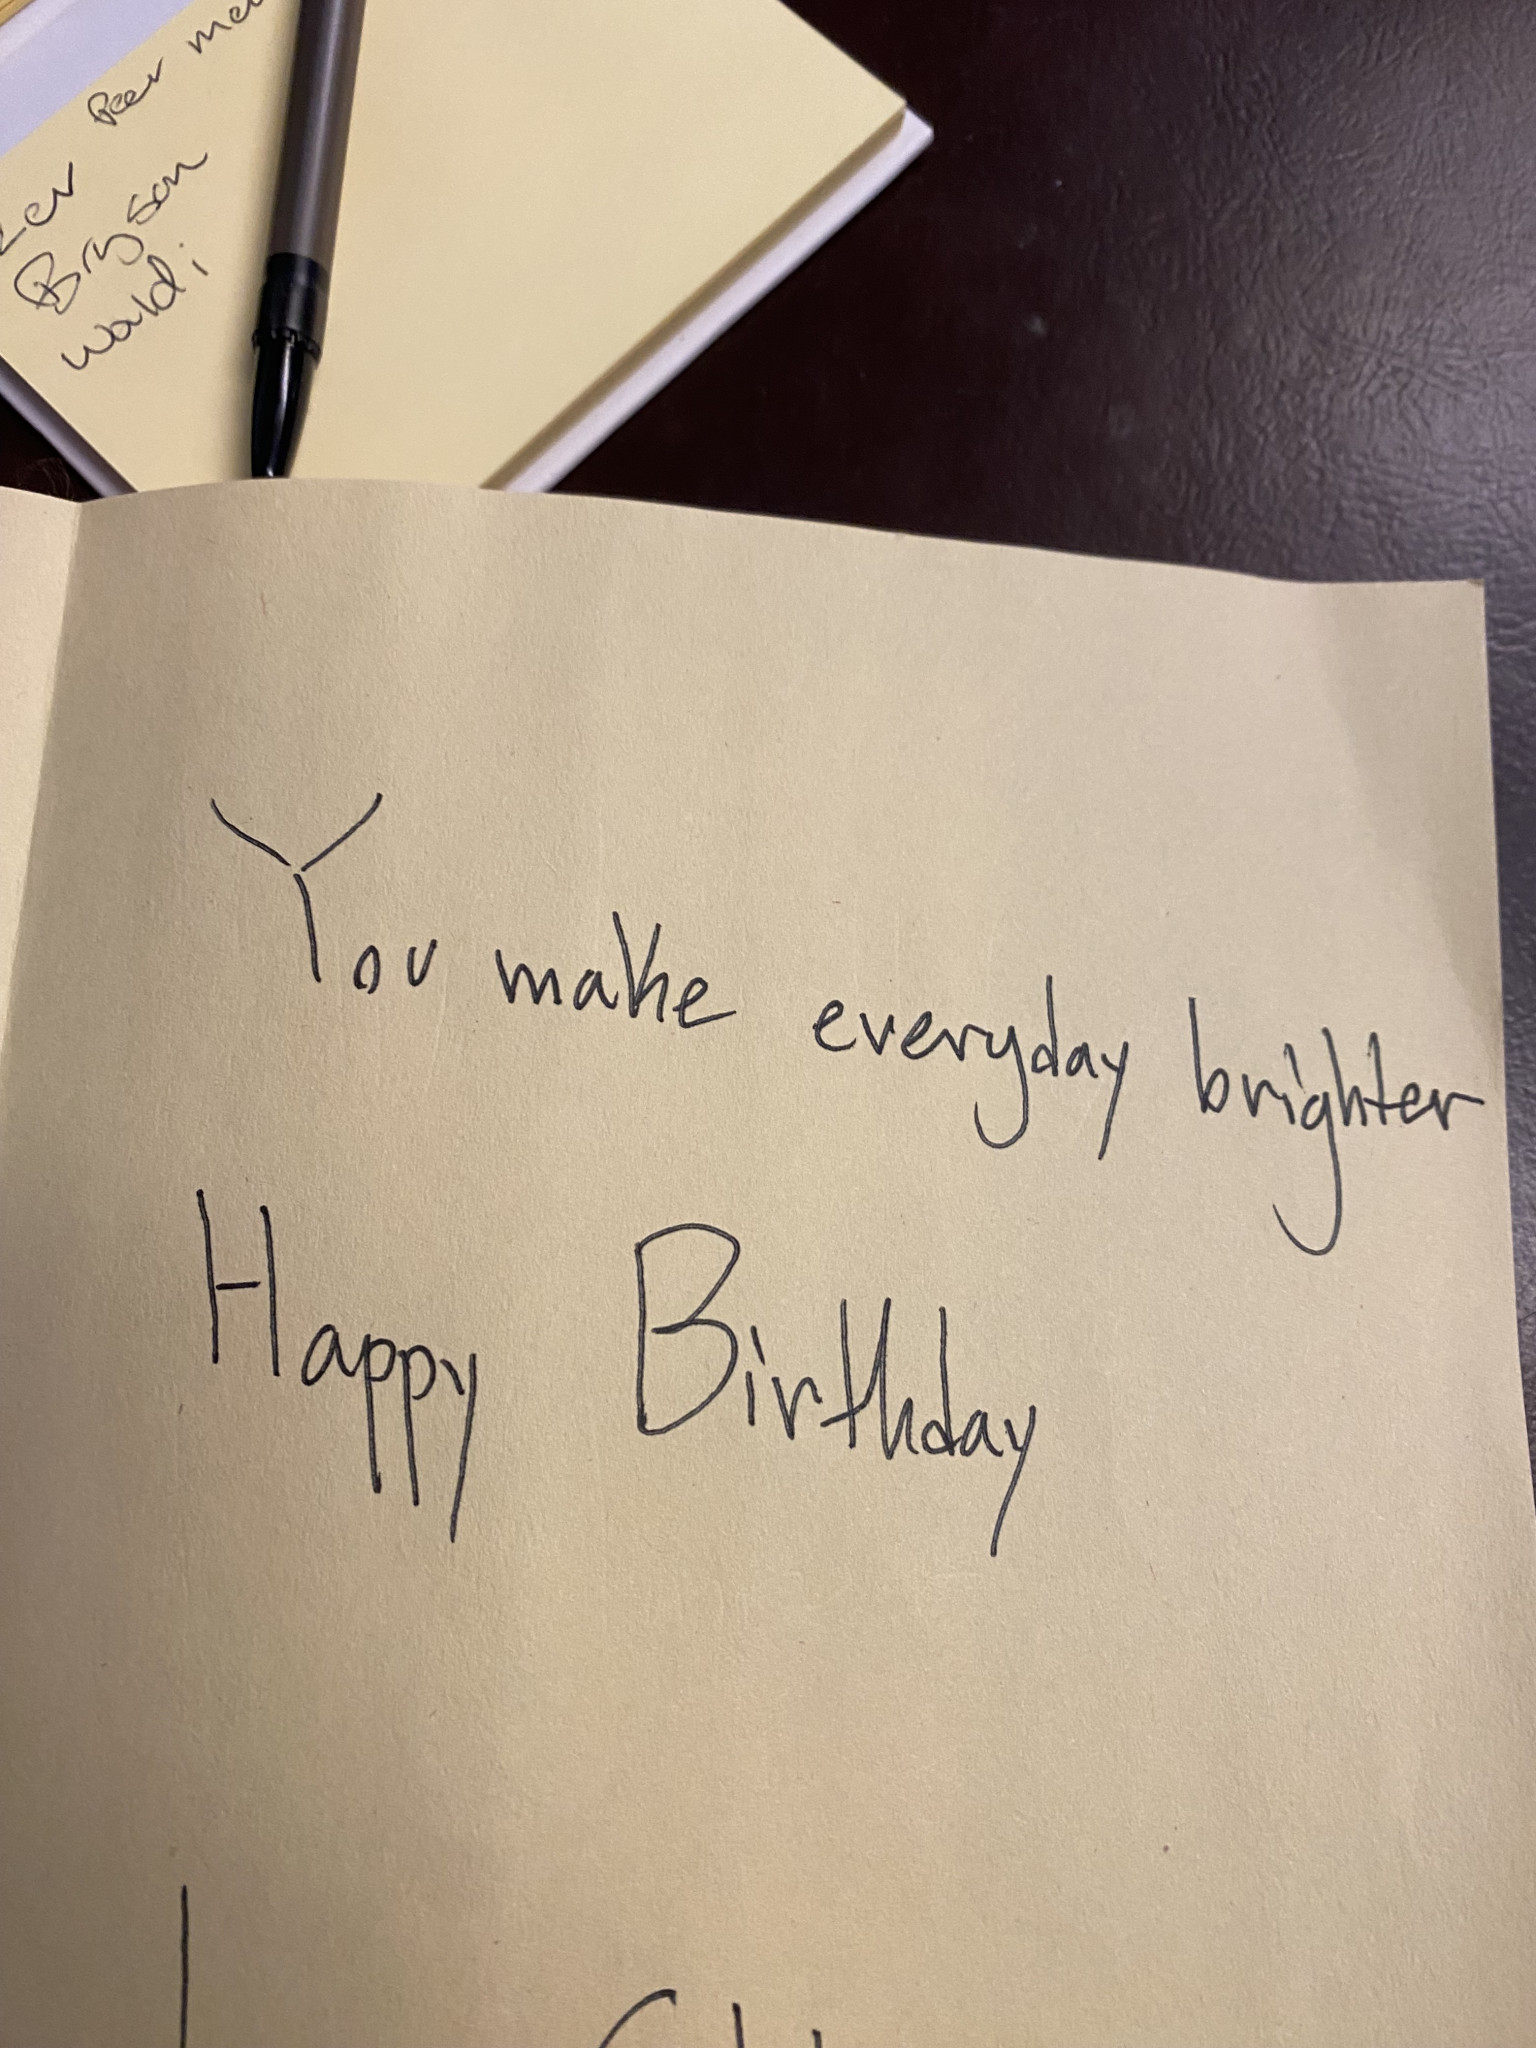 Peer
Bryson
waldi
You make everyday brighter
Happy Birthday